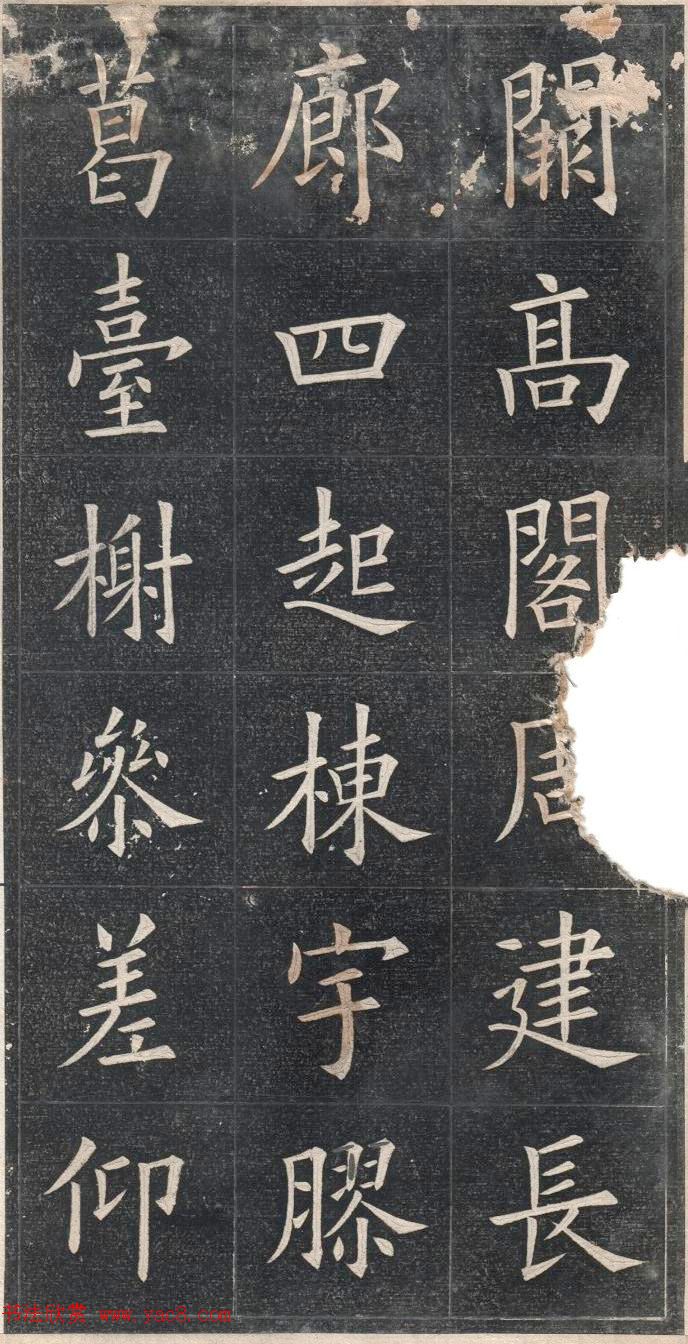 闕高閣周建長
廊四起棟宇膠
葛臺榭參差仰
书法欣赏 www.yac8.com